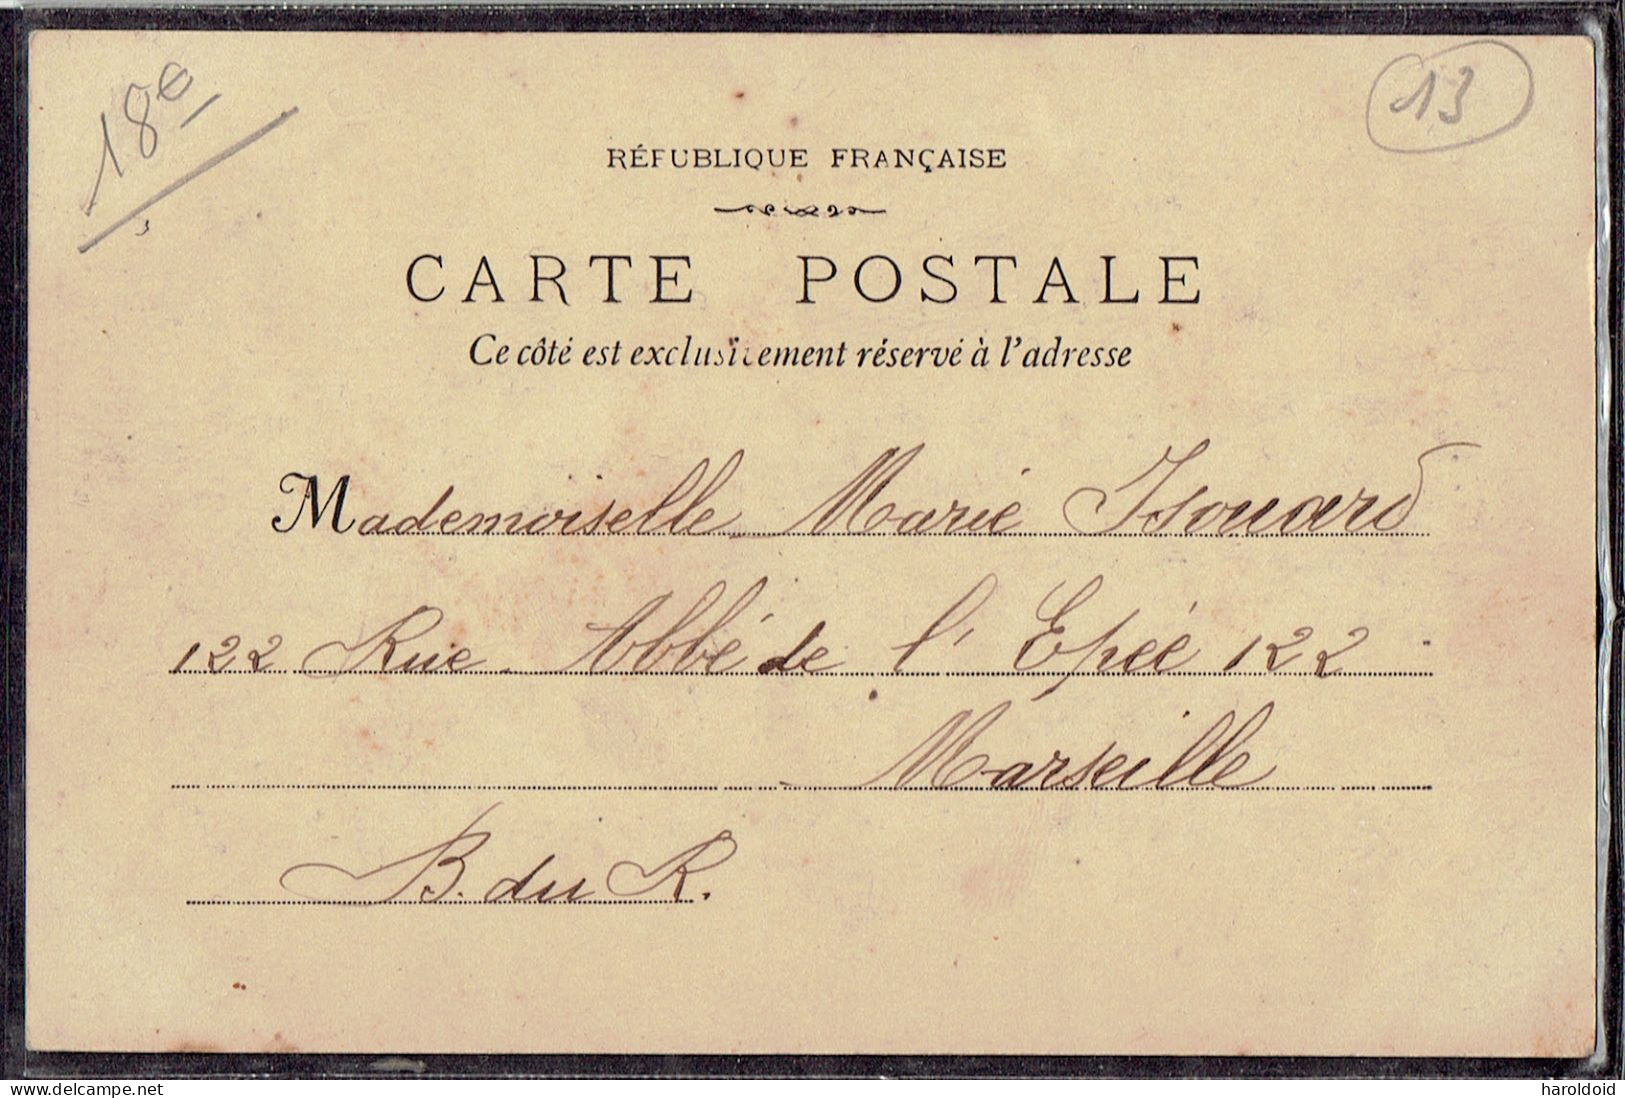 18€
13
RÉPUBLIQUE FRANÇAISE
CARTE POSTALE
Ce côté est exclusivement réservé à l'adresse
Mademoiselle Marie Isouard
122 Rue Abbé de l'Epée 122
Marseille
B. du R.
www.delcampe.net
haroldoid